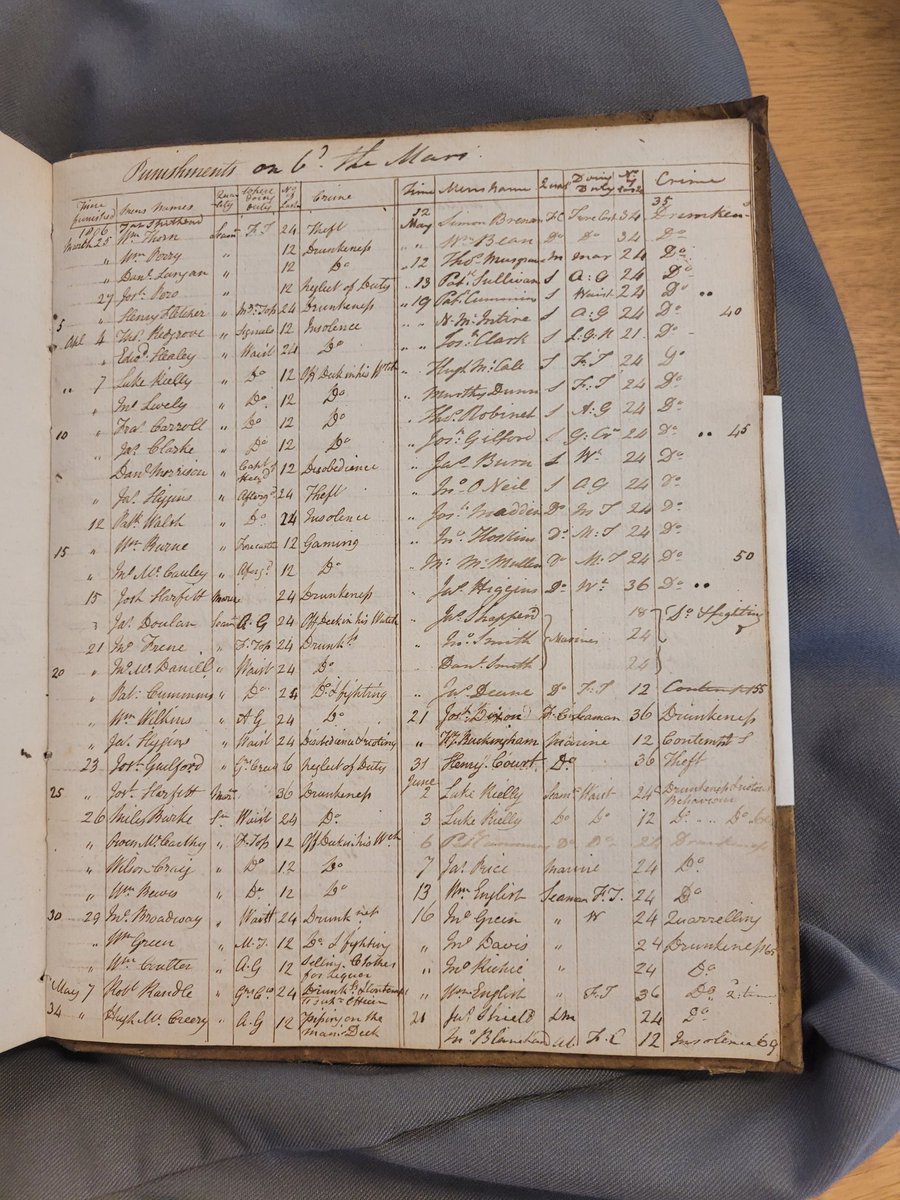 Punishments on bd. the Mars.
Time punished Mens Names Quality Where Doing Duty No of Lashes Crime
1806
March 25 Wm Thorn Seam F.T 24 Theft
" Wm Perry " 12 Drunkeness
" Danl. " 12 Do
27 Josh. " 12 Neglect of Duty
5 " Henry Fletcher " Top 24 Drunkeness
Apl 4 Thos. Redgrove " Signals 12 Insolence
" Edwd. Healey " Waist 24 Do
" 7 Luke Rielly " Do 12 Off Deck in his Wtch
" Jno. Lively " Do 12 Do
10 " Fras. Carroll " Do 12 Do
" Jas. Clarke " Do 12 Do
Danl. Morrison " Capt. 12 Disobedience
" Jas. Higgins " Aftergd. 24 Theft
12 Patk. Walsh " Do 24 Insolence
15 " Wm. Burne " Forecastle 12 Gaming
" Jno. Mc. Cauley " Aftgd. 12 Do
15 Josh Harfitt 24 Drunkeness
" Jas. Doulan Seam A-G 24 Off Deck in his Watch
21 Jno. Frene " F. Top 24 Drunks.
20 " Jno. Mc. Daniell " Waist 24 Do
" Pat: Cummins " Do 24 Do. & fighting
" Wm Wilkins " A G 24 Do
" Jas. Higgins " Waist 24 Disobedience & rioting
23 Josh. Guilford " Gr. Craig 6 Neglect of Duty
25 " Josh. Harfitt Mar. 36 Drunkeness
26 Miles Burke Sn Waist 24 Do
" Owen Mc. Carthy " F. Top 12 Off Deck in his Wch
" Wilson Craig " Do 12 Do
" Wm Bewes " Do 12 Do
30 29 Jno. Broadway " Waist 24 Drunkness
" Wm Green " M.T. 12 Do. & fighting
" Wm Crutter " A.G 12 Selling Clothes for Liquor
May 7 Robt. Randle " 24 Drunks. & Contempt
34 " Hugh Mc. Creery " A.G 12 Pissing on the Main Deck
Time Mens Name Qual Doing Duty No of Lashes Crime
12 May Simon Brenan F.C 34 35 Drunkens
" " Wm. Bean Do Do 34 Do
" 12 Thos. Musgrave m mar 24 Do
" 13 Patk. Sullivan S A:G 24 Do
" 19 Patk. Cummins S Waist 24 Do "
" " N. Mc. Intire S A:G 24 Do 40
" Jos. Clark S L.G.R 21 Do
" Hugh Mc. Cale S F.T 24 Do
" Murthy Dunn S F.T 24 Do
Thos. Robinet S A:G 24 Do
" Josh. Gilford S G: Crw 24 Do " 45
" Jas. Burn S Wt. 24 Do
" Jno. O Neil S A G 24 Do
" Josh. Madden Do M T 24 Do
" Jno. Hoskins Do M:T 24 Do
" Mc. Mullen Do M:T 24 Do 50
" Jas. Higgins Do Wt. 36 Do "
" Jno. Shepperd 18 Do & fighting
" Jno. Smith Marines 24
" Danl. Smith 24
" Jno. Deane Do F.T 12 Contempt 55
21 Josh. Dixon Seaman 36 Drunkeness
" Buckingham Marine 12 Contempt
31 Henry Court Do 36 Theft
June 2 Luke Rielly Seamn Waist 24 Drunkeness & riotous Behaviour
3 Luke Rielly Do Do 12 Do .. Do
6 Patk. Cummins Do Do 24 Drunkeness
7 Jas. Price Marine 24 Do
13 Wm. English Seaman F.T. 24 Do
16 Jno. Green " W 24 Quarrelling
" Jno. Davis " 24 Drunkeness 65
" Jno. Richie " 24 Do
" Wm. English " F.T 36 Do 2d. time
21 Jas. Shield Lm 24 Do
Jno. Blanchan ab F.C 12 Insolence 69